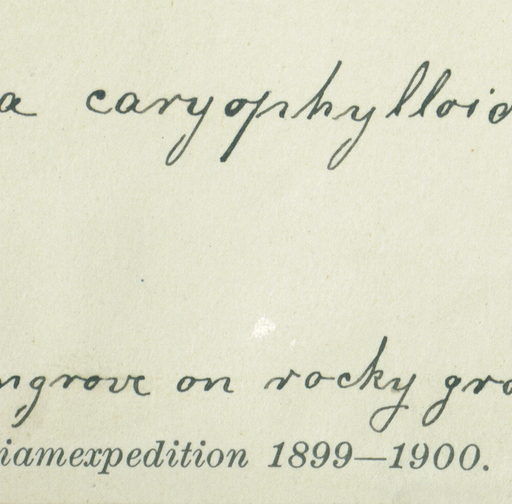 a caryophylloid
ngrove on rocky gro
iamexpedition 1899—1900.